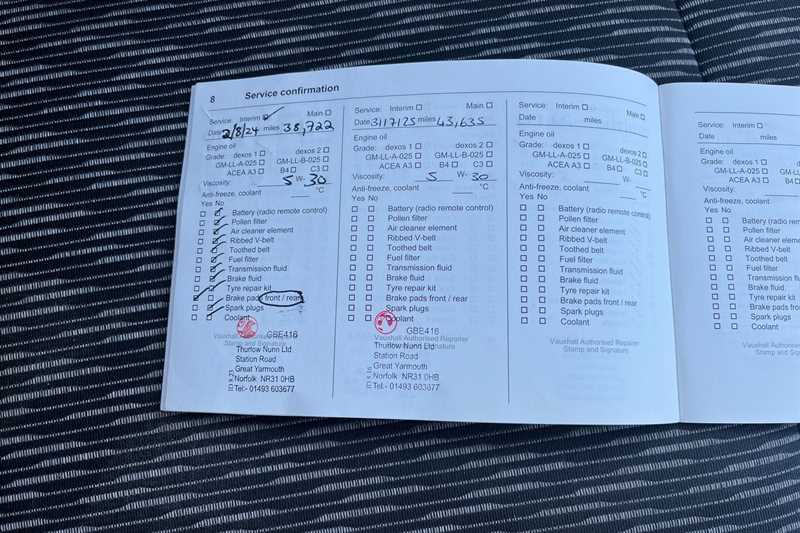 8 Service confirmation
Service: Interim Main
Date 2/8/24 miles 38,722
Engine oil
Grade: dexos 1 dexos 2
GM-LL-A-025 GM-LL-B-025
ACEA A3 B4 C3
Viscosity: 5 W- 30
Anti-freeze, coolant °C
Yes No
Battery (radio remote control)
Pollen filter
Air cleaner element
Ribbed V-belt
Toothed belt
Fuel filter
Transmission fluid
Brake fluid
Tyre repair kit
Brake pads front / rear
Spark plugs
Coolant
GBE416
Vauxhall Authorised Repairer
Stamp and Signature
Thurlow Nunn Ltd
Station Road
Great Yarmouth
Norfolk NR31 0HB
Tel:- 01493 603677
Service: Interim Main
Date 31/7/25 miles 43,635
Engine oil
Grade: dexos 1 dexos 2
GM-LL-A-025 GM-LL-B-025
ACEA A3 B4 C3
Viscosity: 5 W- 30
Anti-freeze, coolant °C
Yes No
Battery (radio remote control)
Pollen filter
Air cleaner element
Ribbed V-belt
Toothed belt
Fuel filter
Transmission fluid
Brake fluid
Tyre repair kit
Brake pads front / rear
Spark plugs
Coolant
GBE416
Vauxhall Authorised Repairer
Signature
Thurlow Nunn Ltd
Station Road
Great Yarmouth
Norfolk NR31 0HB
Tel:- 01493 603677
Service: Interim Main
Date miles
Engine oil
Grade: dexos 1 dexos 2
GM-LL-A-025 GM-LL-B-025
ACEA A3 B4 C3
Viscosity: W-
Anti-freeze, coolant °C
Yes No
Battery (radio remote control)
Pollen filter
Air cleaner element
Ribbed V-belt
Toothed belt
Fuel filter
Transmission fluid
Brake fluid
Tyre repair kit
Brake pads front / rear
Spark plugs
Coolant
Vauxhall Authorised Repairer
Stamp and Signature
Service: Interim
Date miles
Engine oil
Grade: dexos 1
GM-LL-A-025
ACEA A3
Viscosity:
Anti-freeze, coolant
Yes No
Battery (radio
Pollen filter
Air cleaner
Ribbed V-belt
Toothed belt
Fuel filter
Transmission
Brake fluid
Tyre repair kit
Brake pads
Spark plugs
Coolant
Vauxhall
Stamp